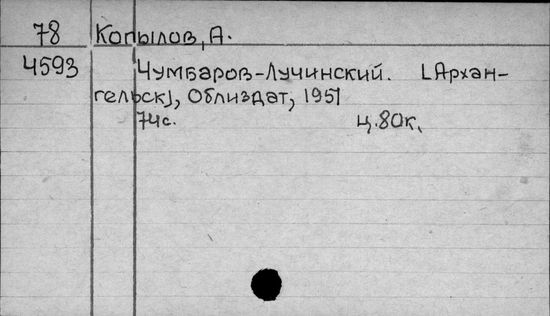 78 Копылов, А.
4593 Чумбаров-Лучинский. [Архан-
гельск], Облиздат, 1951
74с. ц.80к.